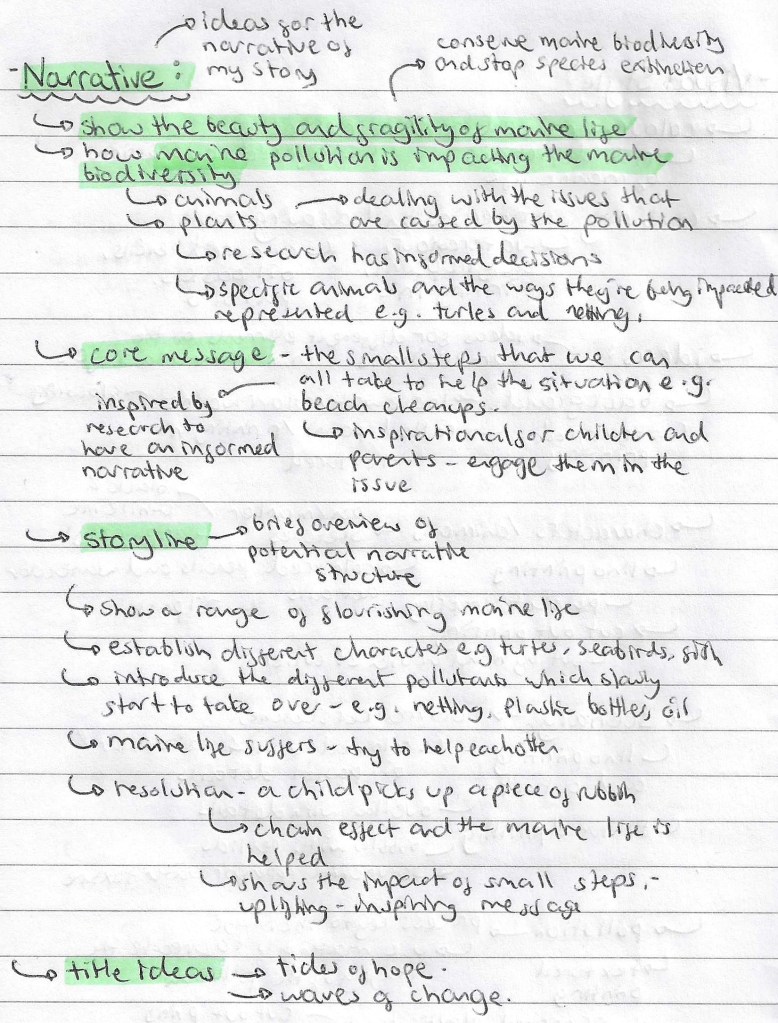 →ideas for the
narrative of
my story
conserve marine biodiversity
and stop species extinction
- Narrative:
↳ show the beauty and fragility of marine life
↳ how marine pollution is impacting the marine
biodiversity
↳ animals → dealing with the issues that
↳ plants are caused by the pollution
↳ research has informed decisions
↳ specific animals and the ways they're being impacted
represented e.g. turles and netting.
↳ core message - the small steps that we can
all take to help the situation e.g.
beach cleanups.
inspired by
research to
have an informed
narrative
↳ inspirational for children and
parents - engage them in the
issue
↳ storyline → brief overview of
potential narrative
structure
↳ show a range of flourishing marine life
↳ establish different characters e.g turtes, seabirds, fish
↳ introduce the different pollutants which slowly
start to take over - e.g. netting, plastic bottles, oil
↳ marine life suffers - try to help eachother
↳ resolution - a child picks up a piece of rubbish
↳ chain effect and the marine life is
helped
↳ shows the impact of small steps -
uplifting - inspiring message
↳ title ideas → tides of hope.
→ waves of change.